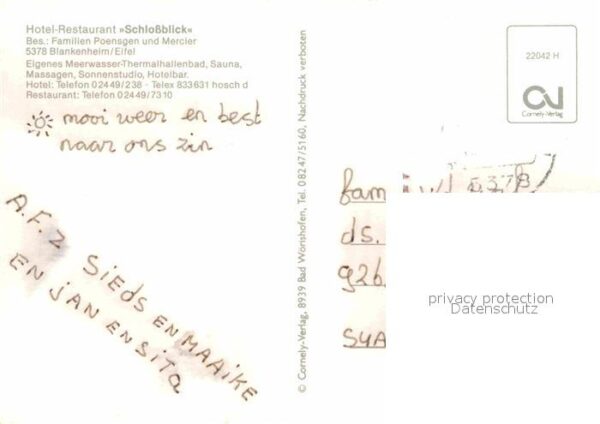 Hotel-Restaurant »Schloßblick«
Bes.: Familien Poensgen und Mercier
5378 Blankenheim/Eifel
Eigenes Meerwasser-Thermalhallenbad, Sauna,
Massagen, Sonnenstudio, Hotelbar.
Hotel: Telefon 02449/238 · Telex 833631 hosch d
Restaurant: Telefon 02449/7310
mooi weer en best
naar ons zin
A.F.Z
SIEDS EN MAAIKE
EN JAN EN SITA
© Cornely-Verlag, 8939 Bad Wörishofen, Tel. 08247/5160, Nachdruck verboten
22042 H
Cornely-Verlag
5378
fam
ds.
926
SYA
privacy protection
Datenschutz